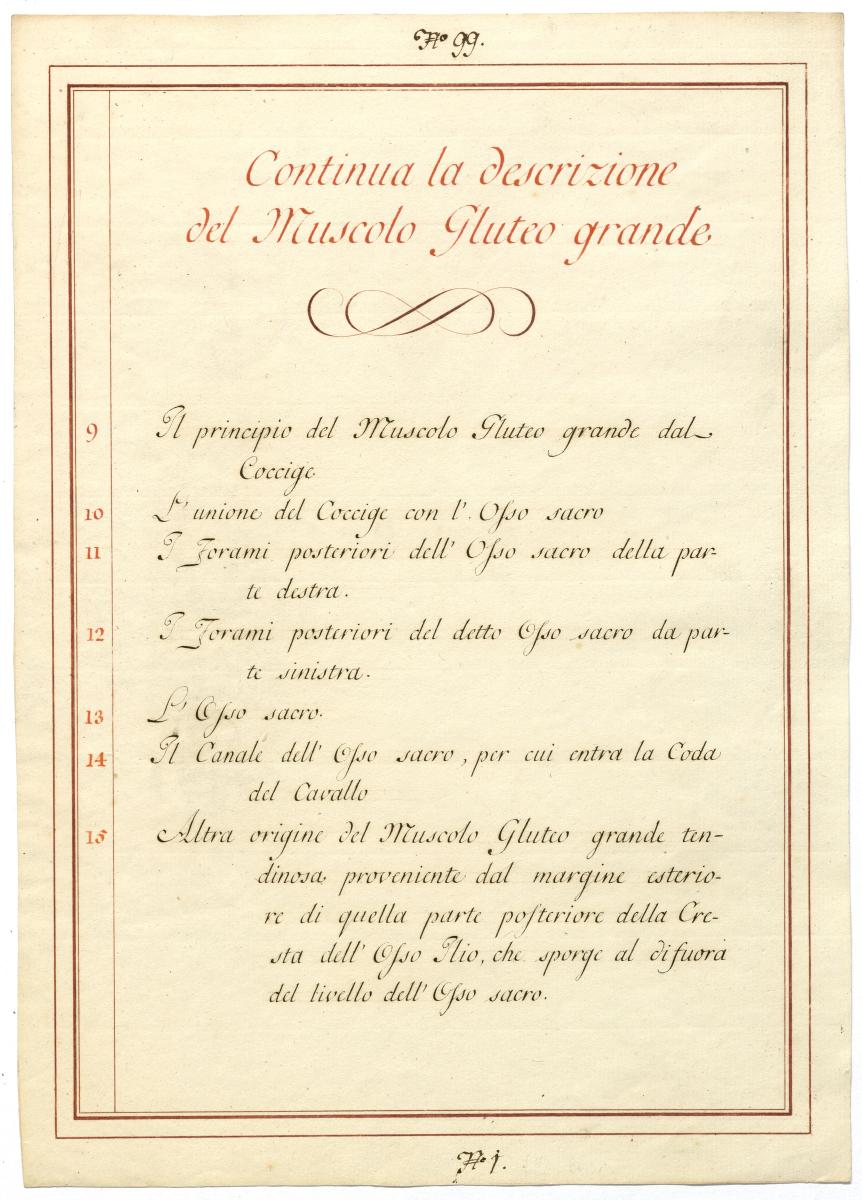 No 99.
Continua la descrizione
del Muscolo Gluteo grande
9 Il principio del Muscolo Gluteo grande dal
Coccige
10 L'unione del Coccige con l'. Osso sacro
11 I Forami posteriori dell' Osso sacro della par-
te destra.
12 I Forami posteriori del detto Osso sacro da par-
te sinistra.
13 L' Osso sacro.
14 Il Canale dell' Osso sacro, per cui entra la Coda
del Cavallo
15 Altra origine del Muscolo Gluteo grande ten-
dinosa proveniente dal margine esterio-
re di quella parte posteriore della Cre-
sta dell' Osso Ilio, che sporge al difuora
del livello dell' Osso sacro.
No 1.